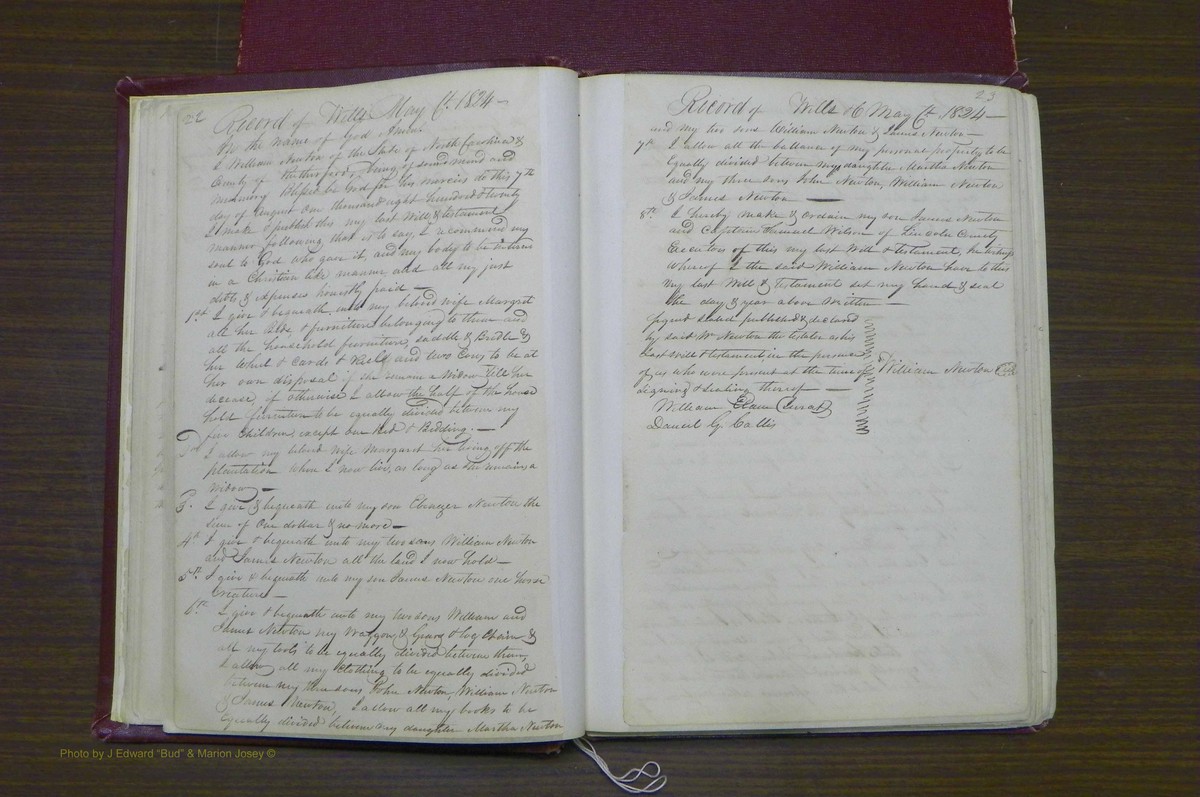 22
Record of Wills May 6th 1824—
In the name of God Amen
I William Newton of the State of North Carolina &
County of Rutherford, being of sound mind and
memory Blessed be God for his mercies do this 7th
day of August One thousand eight hundred & twenty
I make & publish this my last Will & testament
manner following that is to say, I recommend my
soul to God who gave it, and my body to be intered
in a Christian like manner and all my just
debts & expenses honestly paid —
1st I give & bequeath unto my belovd wife Margret
all her & furniture belonging to them and
all the household furniture, saddle & Bridle &
her Wheel & Cards & Reel, and two Cows to be at
her own disposal if she remain a Widow till her
decease, if otherwise I allow the half of the house
hold furniture to be equally divided between my
five Children, except One Bed & Bedding. —
I allow my belovd wife Margaret her living off the
plantation where I now live, as long as she remains a
widow —
3. I give & bequeath unto my son Ebenezer Newton the
sum of One dollar & no more —
4th I give & bequeath unto my two sons William Newton
and James Newton all the land I now hold —
5th I give & bequeath unto my son James Newton one horse
Creature —
6th I give & bequeath unto my two sons William and
James Newton my Waggon & Gears & log Chain &
all my tools to be equally divided between them,
I allow all my Clothing to be equally divided
between my three sons John Newton, William Newton
& James Newton, I allow all my books to be
Equally divided between my daughter Martha Newton
23
Record of Wills May 6th 1824—
and my two sons William Newton & James Newton —
7th I allow all the ballance of my personal property to be
Equally divided between my daughter Martha Newton
and my three sons John Newton, William Newton
& James Newton —
8th I hereby make & ordain my son James Newton
and Captain Samuel Wilson of Lincoln County
Executors of this my last Will & testament, in
whereof I the said William Newton have to this
my last Will & Testament set my hand & seal
the day & year above Written —
Signd seald published & declard
by said Wm Newton the testator as his
last will & testament, in the presence
of us who were present at the time of William Newton
signing & sealing thereof —
William (Jurat)
Daniel G. Callis
Photo by J Edward "Bud" & Marion Josey ©